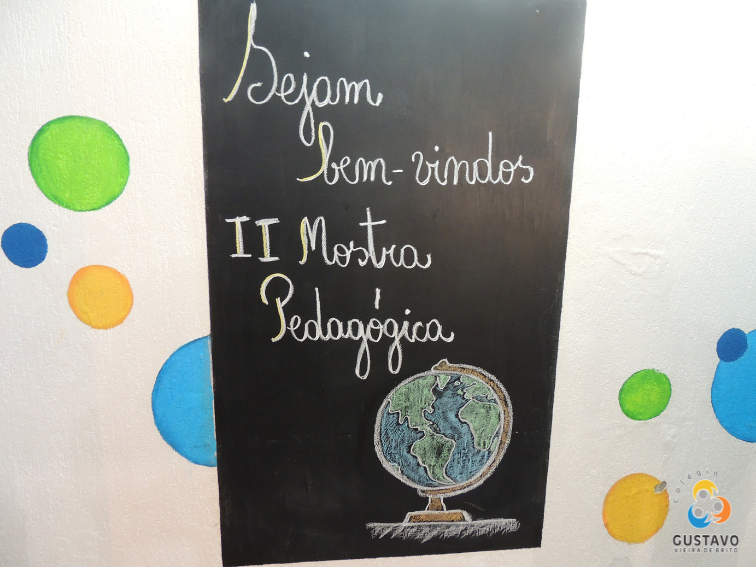 Sejam
bem-vindos
II Mostra
Pedagógica
Colégio
GUSTAVO
VIEIRA DE BRITO